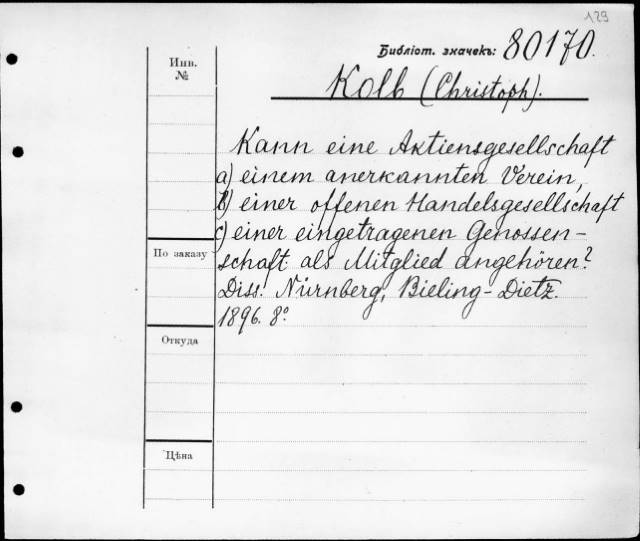 129
Библіот. значекъ: 80170.
Инв.
№
Kolb (Christoph).
Kann eine Aktiensgesellschaft
a) einem anerkannten Verein,
b) einer offenen Handelsgesellschaft
c) einer eingetragenen Genossen-
schaft als Mitglied angehören?
Diss. Nürnberg, Bieling-Dietz.
1896. 8°.
По заказу
Откуда
Цѣна